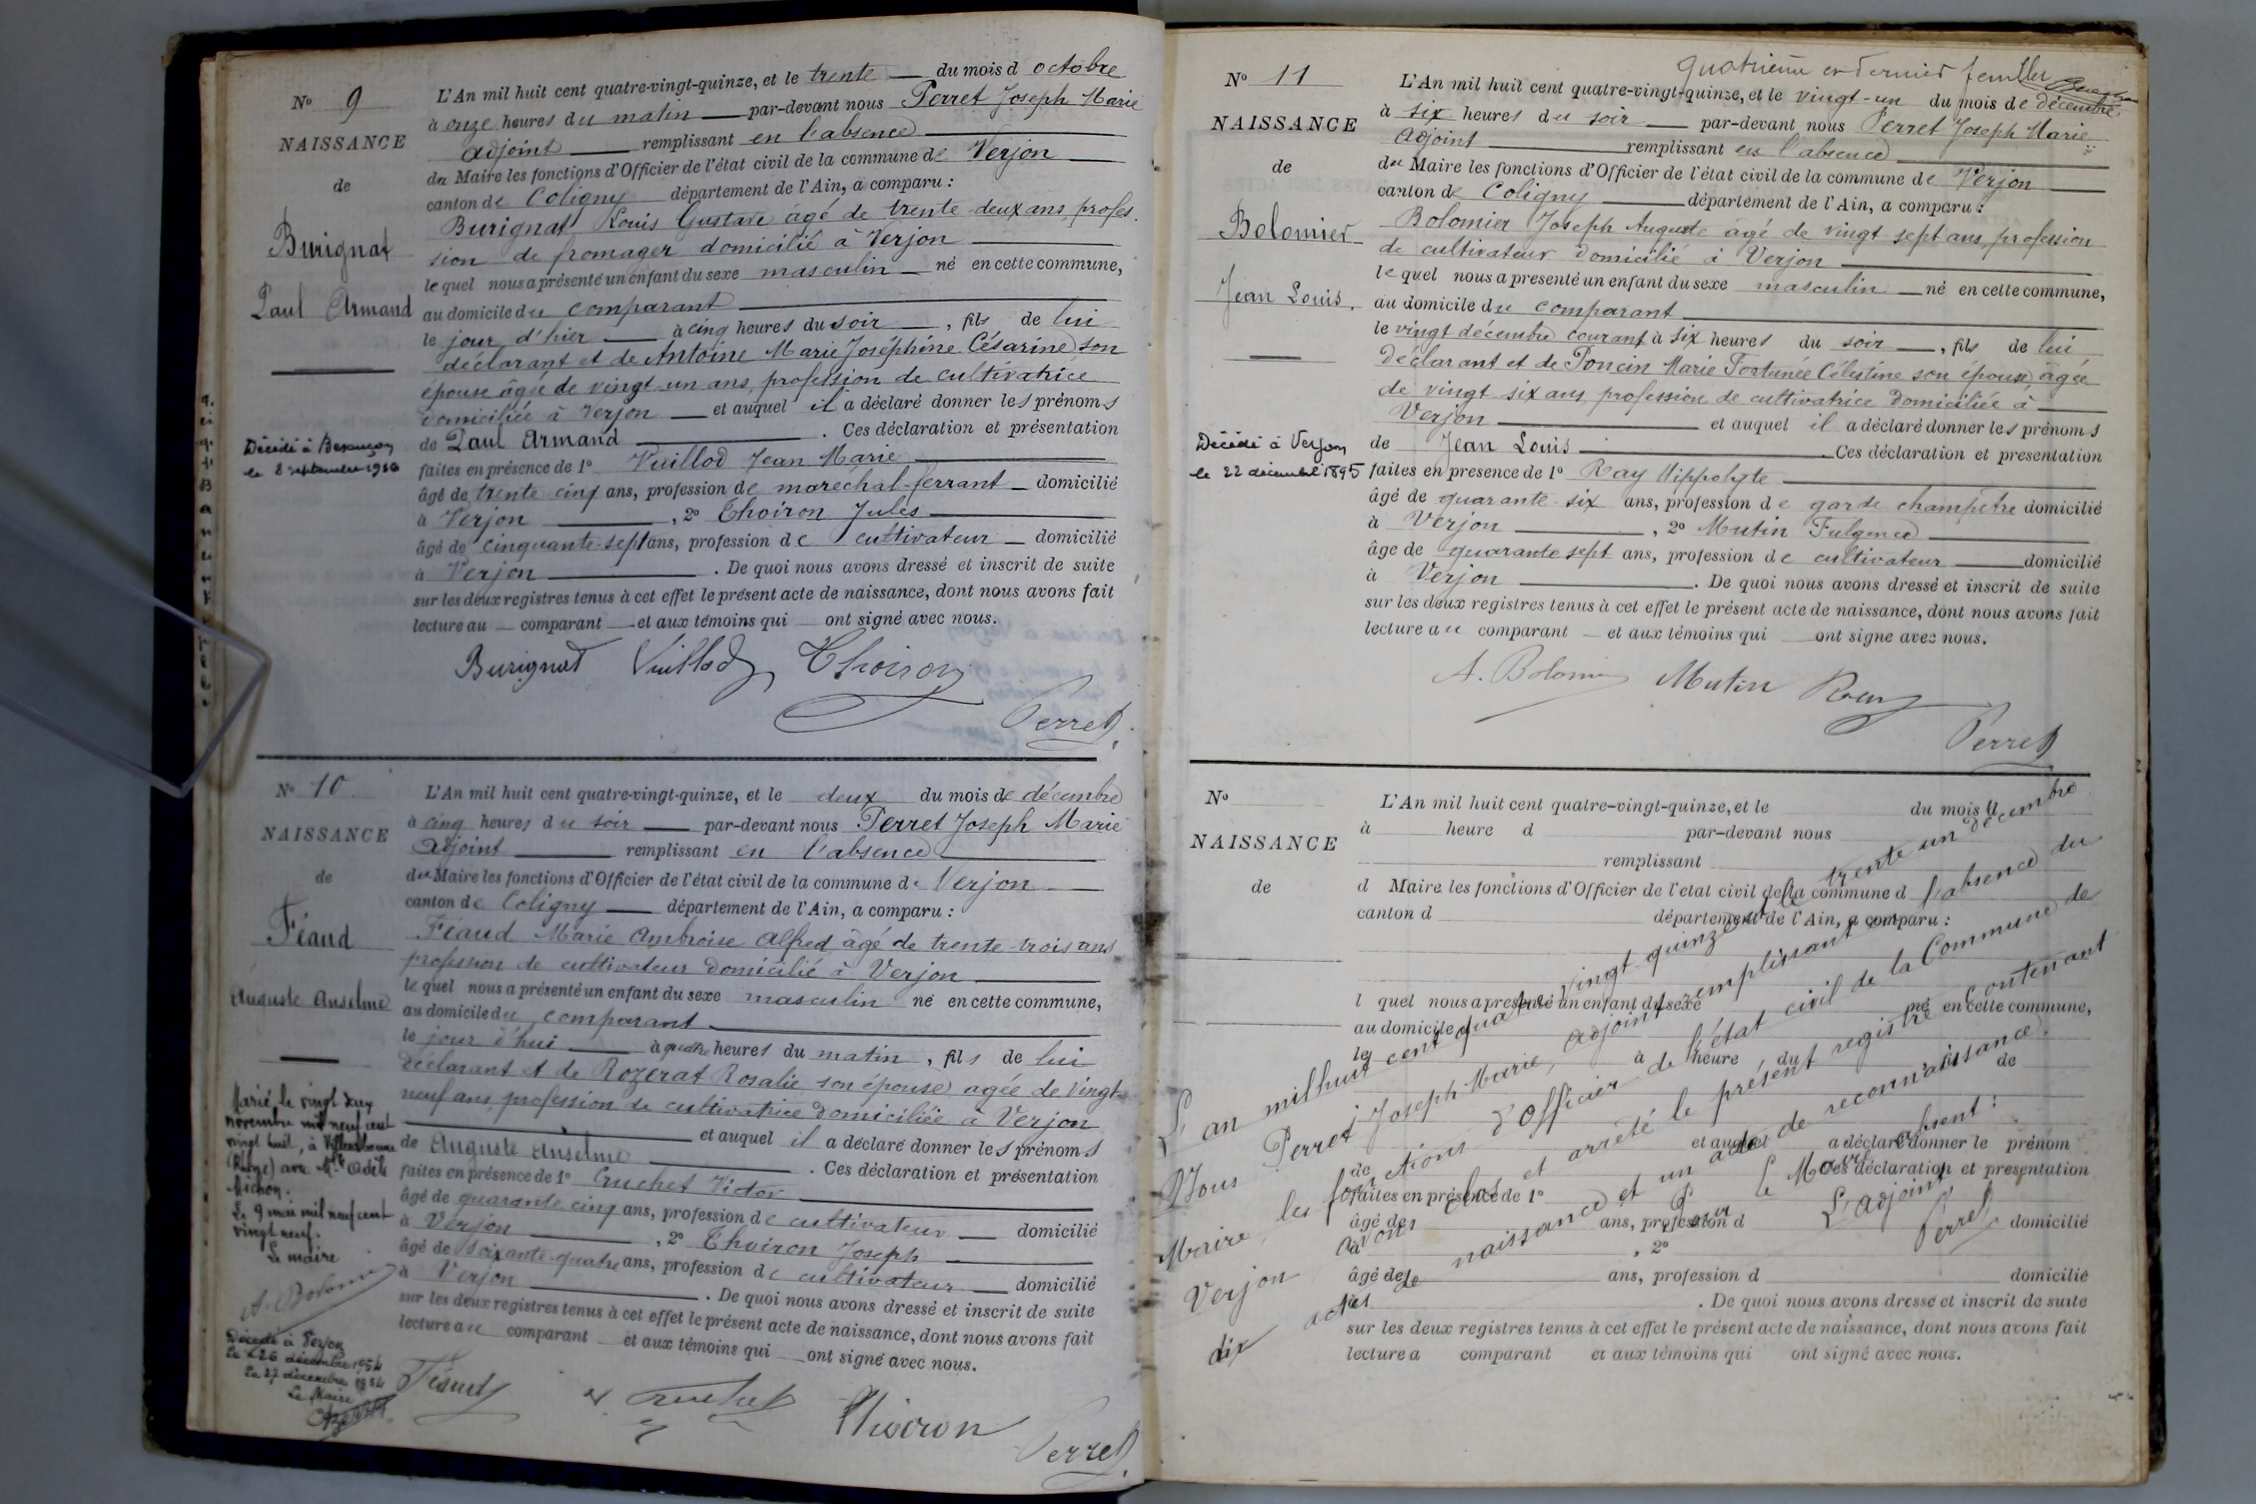 N° 9
NAISSANCE
de
Burignat
Paul Armand
Décédé à Besançon
le 8 septembre
L'An mil huit cent quatre-vingt-quinze, et le trente du mois d octobre
à onze heures du matin par-devant nous Perret Joseph Marie
adjoint remplissant en l'absence
du Maire les fonctions d'Officier de l'état civil de la commune de Verjon
canton de Coligny département de l'Ain, a comparu :
Burignat Louis Gustave âgé de trente-deux ans, profes-
sion de fromager domicilié à Verjon
lequel nous a présenté un enfant du sexe masculin né en cette commune,
au domicile du comparant
le jour d'hier à cinq heures du soir, fils de lui
déclarant et de Antoine Marie Joséphine Césarine son
épouse âgée de vingt-un ans, profession de cultivatrice
domiciliée à Verjon et auquel il a déclaré donner les prénoms
de Paul Armand . Ces déclaration et présentation
faites en présence de 1° Vuillod Jean Marie
âgé de trente cinq ans, profession de marechal-ferrant domicilié
à Verjon , 2° Thoiron Jules
âgé de cinquante-sept ans, profession de cultivateur domicilié
à Verjon . De quoi nous avons dressé et inscrit de suite
sur les deux registres tenus à cet effet le présent acte de naissance, dont nous avons fait
lecture au comparant et aux témoins qui ont signé avec nous.
Burignat Vuillod Thoiron
Perret
N° 10
NAISSANCE
de
Féaud
Auguste Anselme
Marié le vingt deux
novembre mil neuf cent
vingt huit, à Villeurbanne
(Rhône) avec Mlle Odette
Michon.
Le 9 mai mil neuf cent
vingt neuf.
Le maire
A. Bolomier
Décédé à Verjon
le 26 décembre 1954
Le 27 décembre 1954
Le Maire
L'An mil huit cent quatre-vingt-quinze, et le deux du mois de décembre
à cinq heures du soir par-devant nous Perret Joseph Marie
Adjoint remplissant en l'absence
du Maire les fonctions d'Officier de l'état civil de la commune de Verjon
canton de Coligny département de l'Ain, a comparu :
Féaud Marie Ambroise Alfred âgé de trente-trois ans
profession de cultivateur domicilié à Verjon
lequel nous a présenté un enfant du sexe masculin né en cette commune,
au domicile du comparant
le jour d'hui à quatre heures du matin, fils de lui
déclarant et de Rozerat Rosalie son épouse agée de vingt-
neuf ans, profession de cultivatrice domiciliée à Verjon
et auquel il a déclaré donner les prénoms
de Auguste Anselme . Ces déclaration et présentation
faites en présence de 1° Cruchet Victor
âgé de quarante cinq ans, profession de cultivateur domicilié
à Verjon , 2° Thoiron Joseph
âgé de soixante-quatre ans, profession de cultivateur domicilié
à Verjon . De quoi nous avons dressé et inscrit de suite
sur les deux registres tenus à cet effet le présent acte de naissance, dont nous avons fait
lecture au comparant et aux témoins qui ont signé avec nous.
Féaud Cruchet Thoiron
Perret
quatrième et dernier feuillet
N° 11
NAISSANCE
de
Bolomier
Jean Louis.
Décédé à Verjon
le 22 décembre 1895
L'An mil huit cent quatre-vingt-quinze, et le vingt-un du mois de décembre
à six heures du soir par-devant nous Perret Joseph Marie
Adjoint remplissant en l'absence
du Maire les fonctions d'Officier de l'état civil de la commune de Verjon
canton de Coligny département de l'Ain, a comparu :
Bolomier Joseph Auguste âgé de vingt sept ans, profession
de cultivateur domicilié à Verjon
lequel nous a présenté un enfant du sexe masculin né en cette commune,
au domicile du comparant
le vingt décembre courant à six heures du soir, fils de lui
déclarant et de Poncin Marie Fortunée Célestine son épouse, âgée
de vingt-six ans, profession de cultivatrice domiciliée à
Verjon et auquel il a déclaré donner les prénoms
de Jean Louis . Ces déclaration et présentation
faites en présence de 1° Ray Hippolyte
âgé de quarante six ans, profession de garde champêtre domicilié
à Verjon , 2° Mutin Fulgence
âgé de quarante sept ans, profession de cultivateur domicilié
à Verjon . De quoi nous avons dressé et inscrit de suite
sur les deux registres tenus à cet effet le présent acte de naissance, dont nous avons fait
lecture au comparant et aux témoins qui ont signé avec nous.
A. Bolomier Mutin Ray
Perret
N°
NAISSANCE
de
L'An mil huit cent quatre-vingt-quinze, et le du mois d
à heure d par-devant nous
remplissant
d Maire les fonctions d'Officier de l'état civil de la commune d
canton d département de l'Ain, a comparu :
l quel nous a présenté un enfant du sexe né en cette commune,
au domicile d
le à heure du , fil de
et auquel a déclaré donner le prénom
de . Ces déclaration et présentation
faites en présence de 1°
âgé de ans, profession d domicilié
à , 2°
âgé de ans, profession d domicilié
à . De quoi nous avons dressé et inscrit de suite
sur les deux registres tenus à cet effet le présent acte de naissance, dont nous avons fait
lecture a comparant et aux témoins qui ont signé avec nous.
L'an mil huit cent quatre vingt-quinze et le trente un décembre
Nous Perret Joseph-Marie, adjoint remplissant en l'absence du
Maire, les fonctions d'Officier de l'état civil de la Commune de
Verjon avons clos et arrêté le présent registre contenant
dix actes de naissance et un acte de reconnaissance.
Pour le Maire absent :
L'Adjoint,
Perret